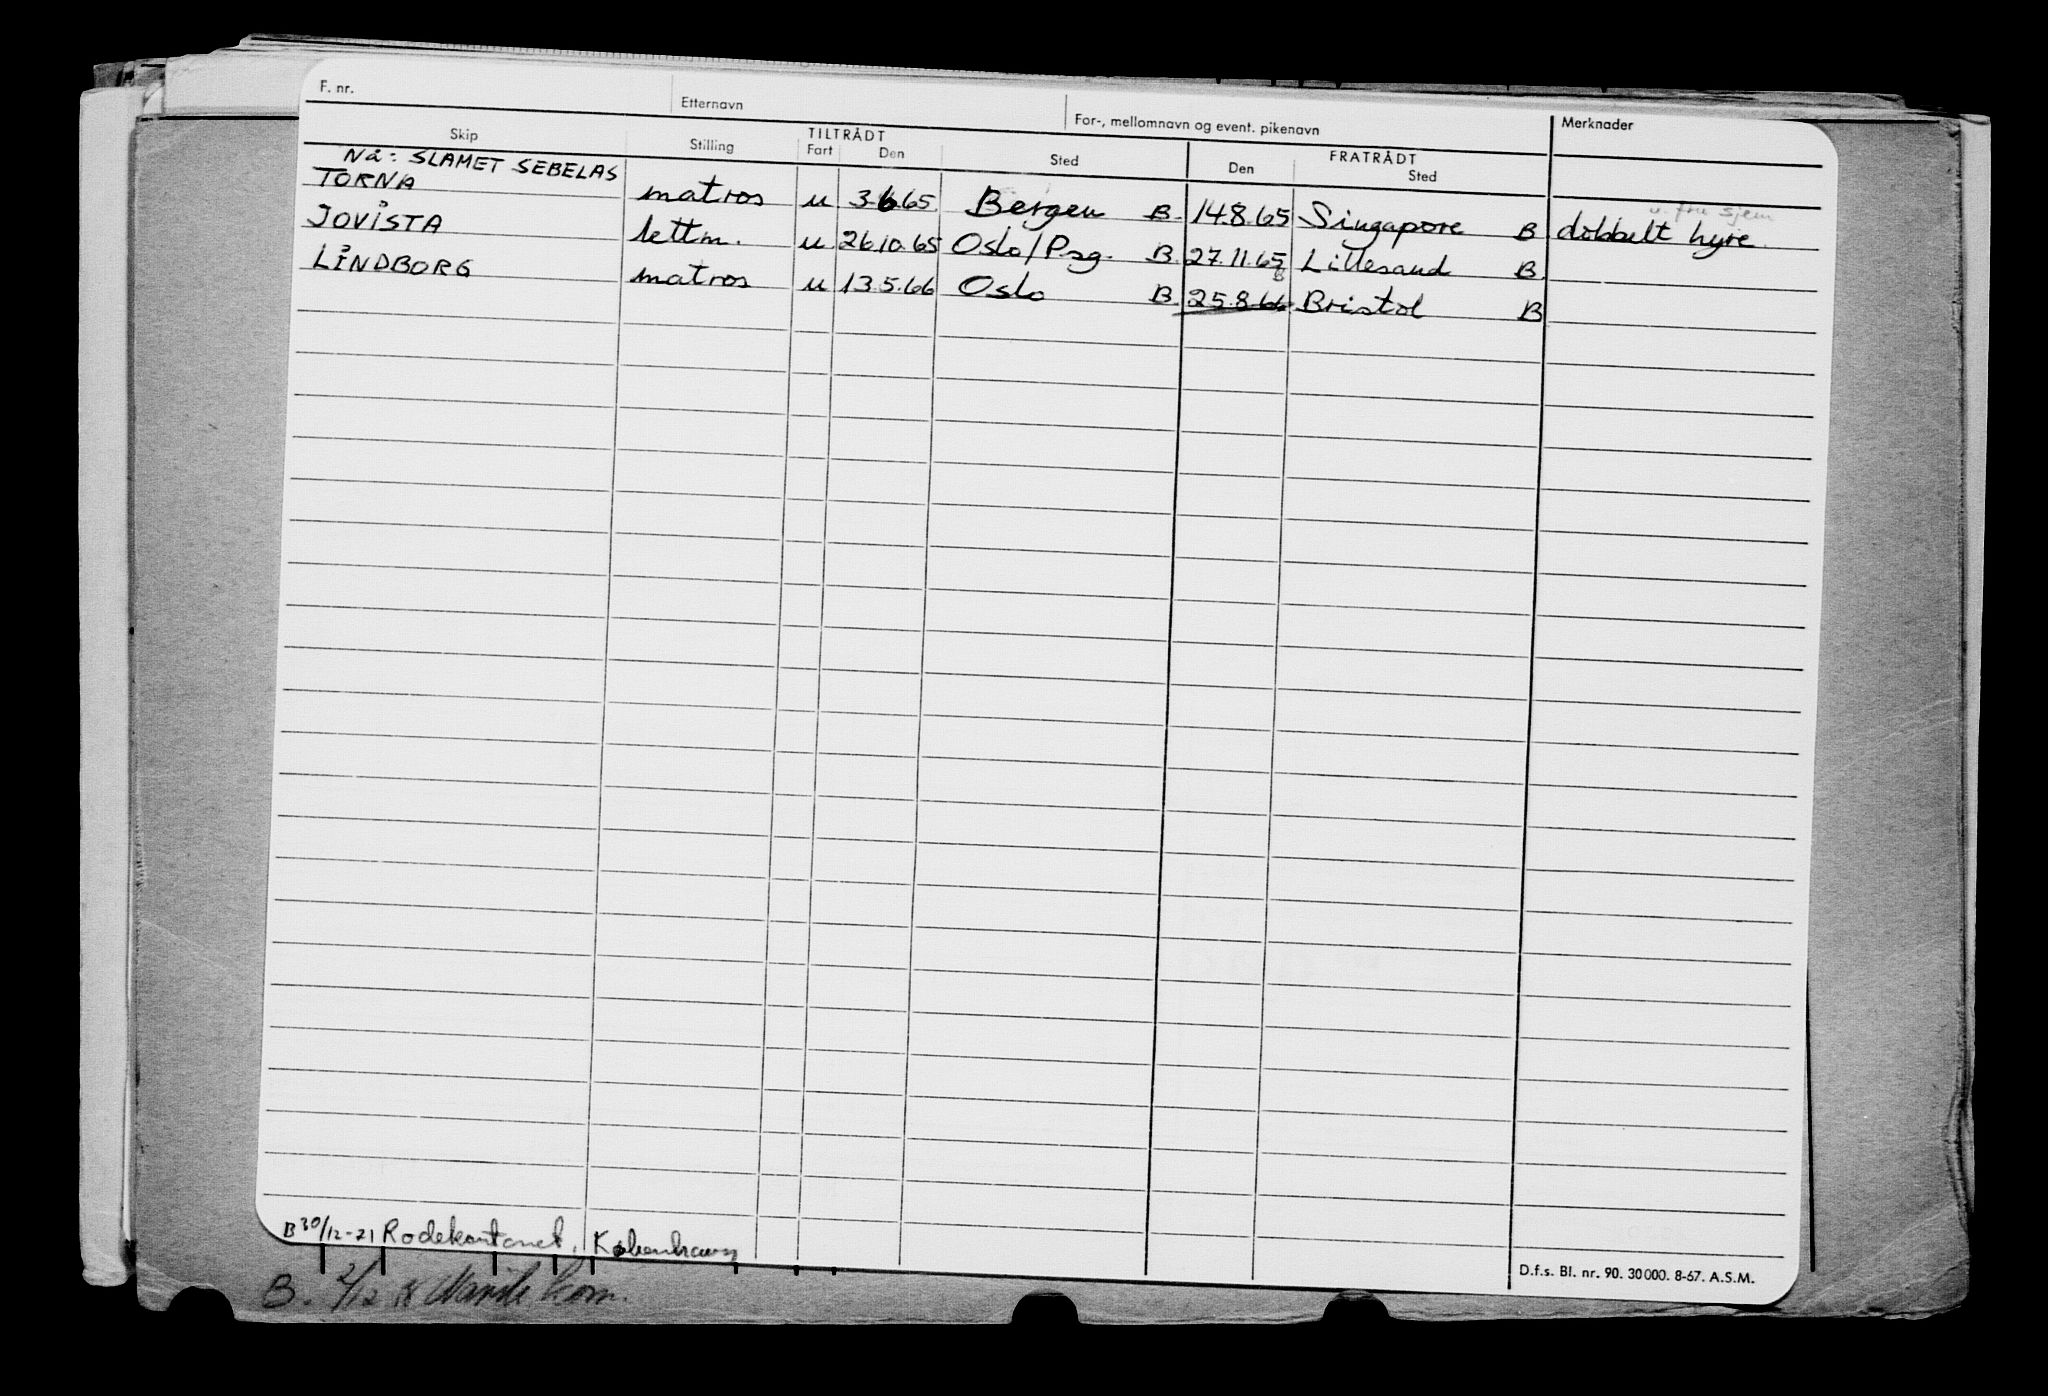 F. nr. Etternavn For-, mellomnavn og event. pikenavn Merknader
Skip Stilling TILTRÅDT Fart Den Sted FRATRÅDT Den Sted
Nå: SLAMET SEBELAS
TORNA matros u 3.6.65. Bergen B. 14.8.65 Singapore B dobbelt hyre.
JOVISTA lettm. u 26.10.65 Oslo/Psg. B. 27.11.65 Lillesand B.
LINDBORG matros u 13.5.66 Oslo B. 25.8.66 Bristol B
B 30/12-71 Rodekontoret, København
D.f.s. Bl. nr. 90. 30 000. 8-67. A.S.M.
B. 2/12 kom.